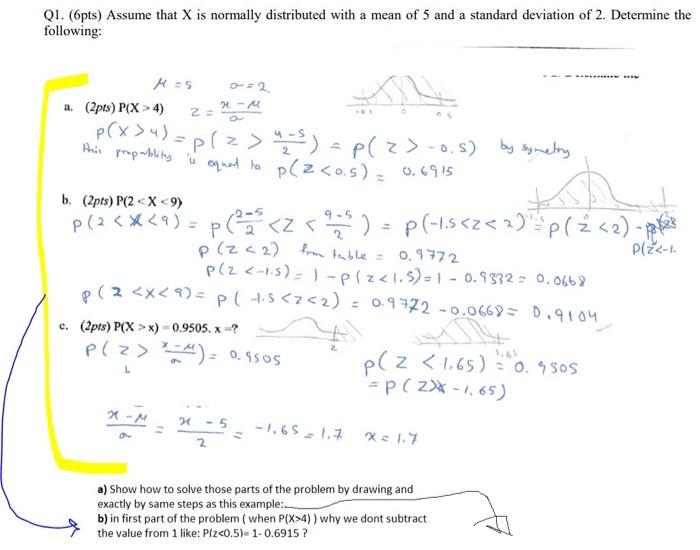 Q1. (6pts) Assume that X is normally distributed with a mean of 5 and a standard deviation of 2. Determine the
following:
μ = 5 σ = 2
a. (2pts) P(X > 4) z = x - μ / σ
p(x > 4) = p( z > 4-5 / 2 ) = p( z > -0.5) by symetry
this propablity is equal to p(z < 0.5) = 0.6915
b. (2pts) P(2 < X < 9)
p(2 < x < 9) = p( 2-5 / 2 < z < 9-5 / 2 ) = p(-1.5 < z < 2) = p( z < 2) -
p(z < -1.
p (z < 2) from table = 0.9772
p(z < -1.5) = 1 - p(z < 1.5) = 1 - 0.9332 = 0.0668
p(2 < x < 9) = p( -1.5 < z < 2) = 0.9772 - 0.0668 = 0.9104
c. (2pts) P(X > x) = 0.9505. x =?
z
p( z > x - μ / σ ) = 0.9505
1.65
p( z < 1.65) = 0.9505
= p( z > -1.65)
x - μ / σ = x - 5 / 2 = -1.65 = 1.7 x = 1.7
a) Show how to solve those parts of the problem by drawing and
exactly by same steps as this example:
b) in first part of the problem ( when P(X>4) ) why we dont subtract
the value from 1 like: P(z<0.5)= 1- 0.6915 ?